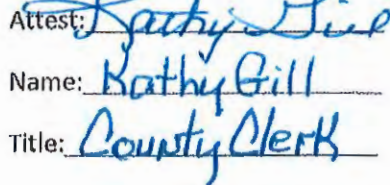 Attest: Kathy Gill
Name: Kathy Gill
Title: County Clerk